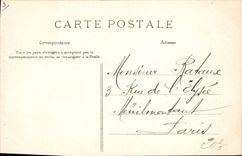 CARTE POSTALE
Correspondance
Adresse
Tous les pays étrangers n'acceptent pas la
correspondance au verso, se renseigner à la Poste.
Monsieur Rataux
3 Rue de l'Elysée
Ménilmontant
Paris